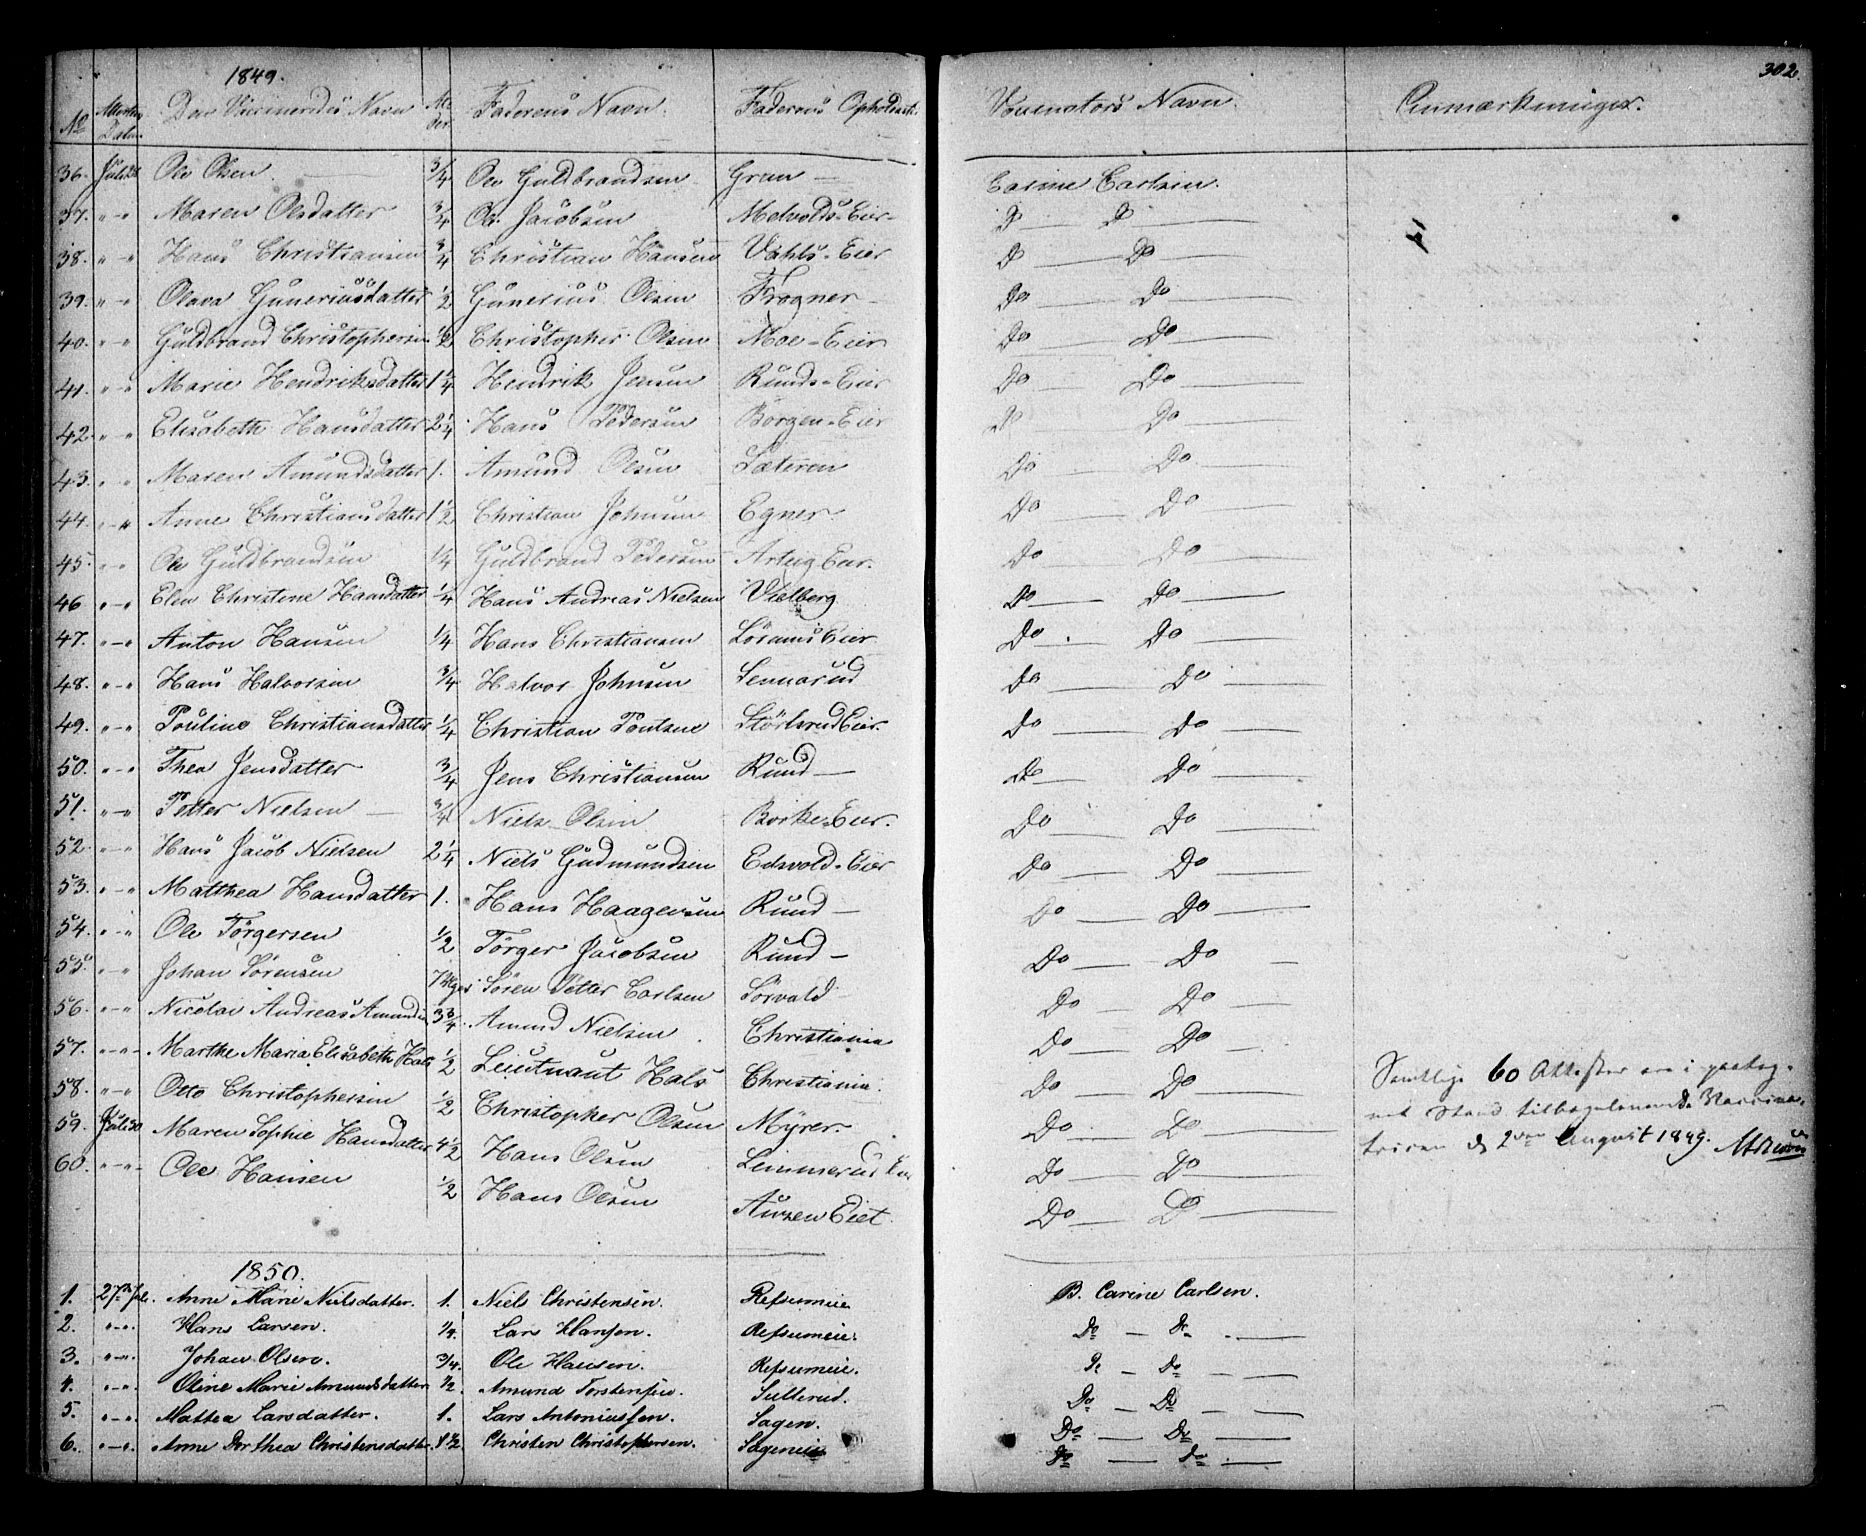 1849.
302.
No Attestens Datum Den Vaccineredes Navn Alder Faderens Navn. Faderens Opholdsst. Vaccinators Navn. Anmærkninger.
36. Juli 28 Ole Olsen. 3/4 Ole Guldbrandsen Gran — Carine Carlsen.
37. "—" Maren Olsdatter 3/4 Ole Jacobsen Melvolds-Eier Do — Do —
38. "—" Hans Christiansen 3/4 Christian Hansen Vahls-Eier Do — Do —
39. "—" Olava Guneriusdatter 1/2 Gunerius Olsen Frogner — Do — Do —
40. "—" Guldbrand Christophersen 1/2 Christopher Olsen Moe-Eier Do — Do —
41. "—" Marie Hendriksdatter 1 1/4 Hendrik Jensen Runds-Eier Do — Do —
42. "—" Elisabeth Hansdatter 2 1/4 Hans Pedersen Børgen-Eier Do — Do —
43. "—" Maren Amundsdatter 1. Amund Olsen Sæteren Do — Do —
44. "—" Anne Christiansdatter 1 1/2 Christian Johnsen Egner. Do — Do —
45. "—" Ole Guldbrandsen 1/4 Guldbrand Pedersen Eier. Do — Do —
46 "—" Elen Christine Hansdatter 1/4 Hans Andreas Nielsen Vielberg Do — Do —
47. "—" Anton Hansen 1/4 Hans Christiansen Eier Do . Do —
48. "—" Hans Halvorsen 3/4 Halvor Johnsen Sennerud Do — Do —
49. "—" Pouline Christiansdatter 1/4 Christian Poulsen Størlsrud Eier. Do — Do —
50. "—" Thea Jensdatter 3/4 Jens Christiansen Rund — Do — Do —
51. "—" Petter Nielsen — 3/4 Niels Olsen Borke-Eier. Do — Do —
52. "—" Hans Jacob Nielsen 2 1/4 Niels Gudmundsen Edsvold-Eier Do — Do —
53. "—" Matthea Hansdatter 1. Hans Haagensen Rund — Do — Do —
54. "—" Ole Törgersen 1/2 Törger Jacobsen Rund — Do — Do —
55. "—" Johan Sørensen 7 Uger Søren Petter Carlsen Sørvald Do — Do —
56. "—" Nicolai Andreas Amundsen 3 3/4 Amund Nielsen. Christiania Do — Do —
57. "—" Marthe Maria Elisabeth Hals 1/2 Lieutnant Hals Christiania. Do — Do —
58. "—" Otto Christophersen 1/2 Christopher Olsen Myrer — Do — Do —
59. Juli 30 Maren Sophie Hansdatter 4 1/2 Hans Olsen Limmerud Do — Do —
60. "—" Ole Hansen 1/2 Hans Olsen Aursen Eiet. Do — Do —
Samtlige 60 Attester ere i
Stand
den 2den August 1849.
1850.
1. 27de Juli. Anne Marie Nielsdatter. 1. Niels Christensen. Refsumeie B. Carine Carlsen.
2. "—" Hans Larsen. 1/4. Lars Hansen. Refsumeie. Do — Do —
3. "—" Johan Olsen. 3/4. Ole Hansen. Refsumeie. Do — Do —
4. "—" Oline Marie Amundsdatter 1/2. Amund Torstensen. Sulterud. Do — Do —
5. "—" Mattea Larsdatter. 1. Lars Antoniussen. Sagen. Do — Do —
6. "—" Anne Dorthea Christensdatter. 8 1/2. Christen Christophersen. Sageneie Do — Do —